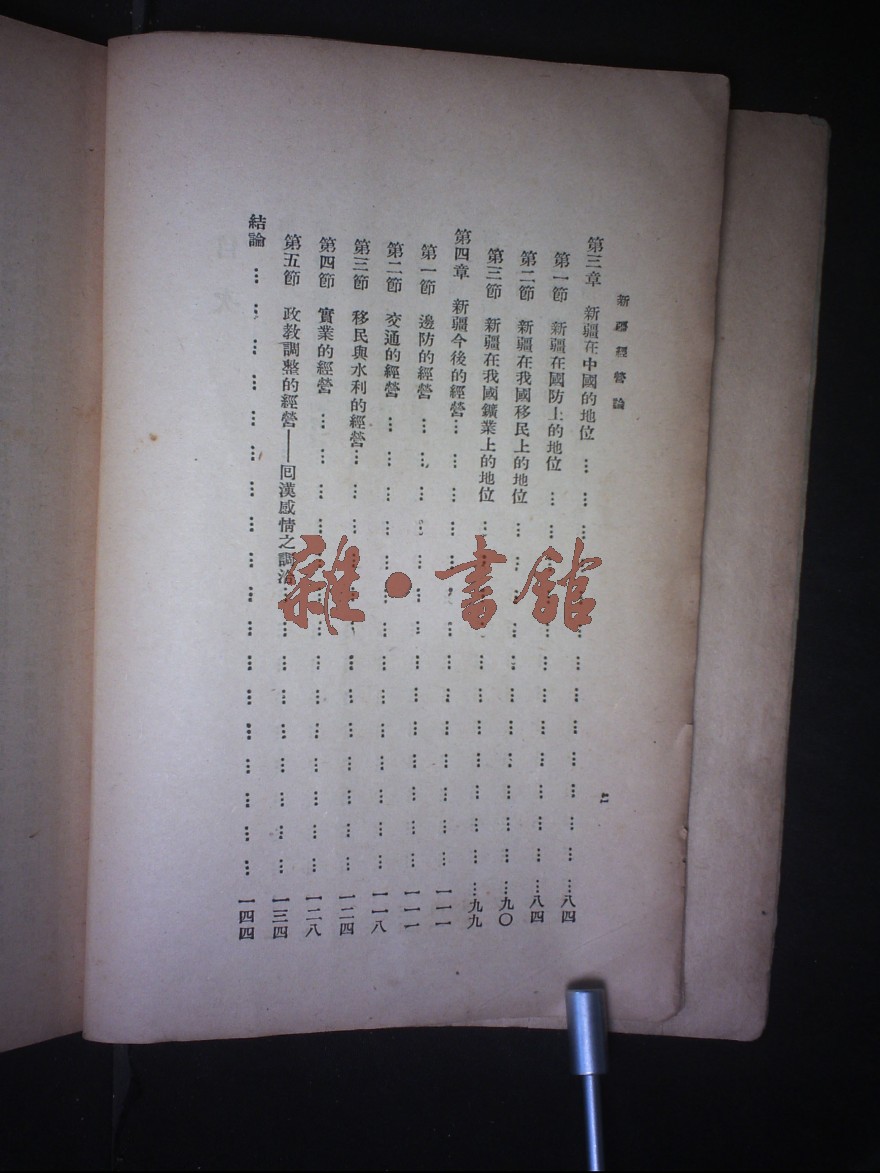 新疆經營論
第三章 新疆在中國的地位 … … … … … … … … … … … … …八四
第一節 新疆在國防上的地位 … … … … … … … … … … … …八四
第二節 新疆在我國移民上的地位 … … … … … … … … … … …九〇
第三節 新疆在我國鑛業上的地位 … … … … … … … … … … …九九
第四章 新疆今後的經營… … … … … … … … … … … … … 一一一
第一節 邊防的經營 … … … … … … … … … … … … … … 一一一
第二節 交通的經營 … … … … … … … … … … … … … … 一一八
第三節 移民與水利的經營… … … … … … … … … … … … … 一二四
第四節 實業的經營 … … … … … … … … … … … … … … 一二八
第五節 政教調整的經營——回漢感情之調洽… … … … … … … … … 一三四
結論 … … … … … … … … … … … … … … … … … … 一四四
雜·書館